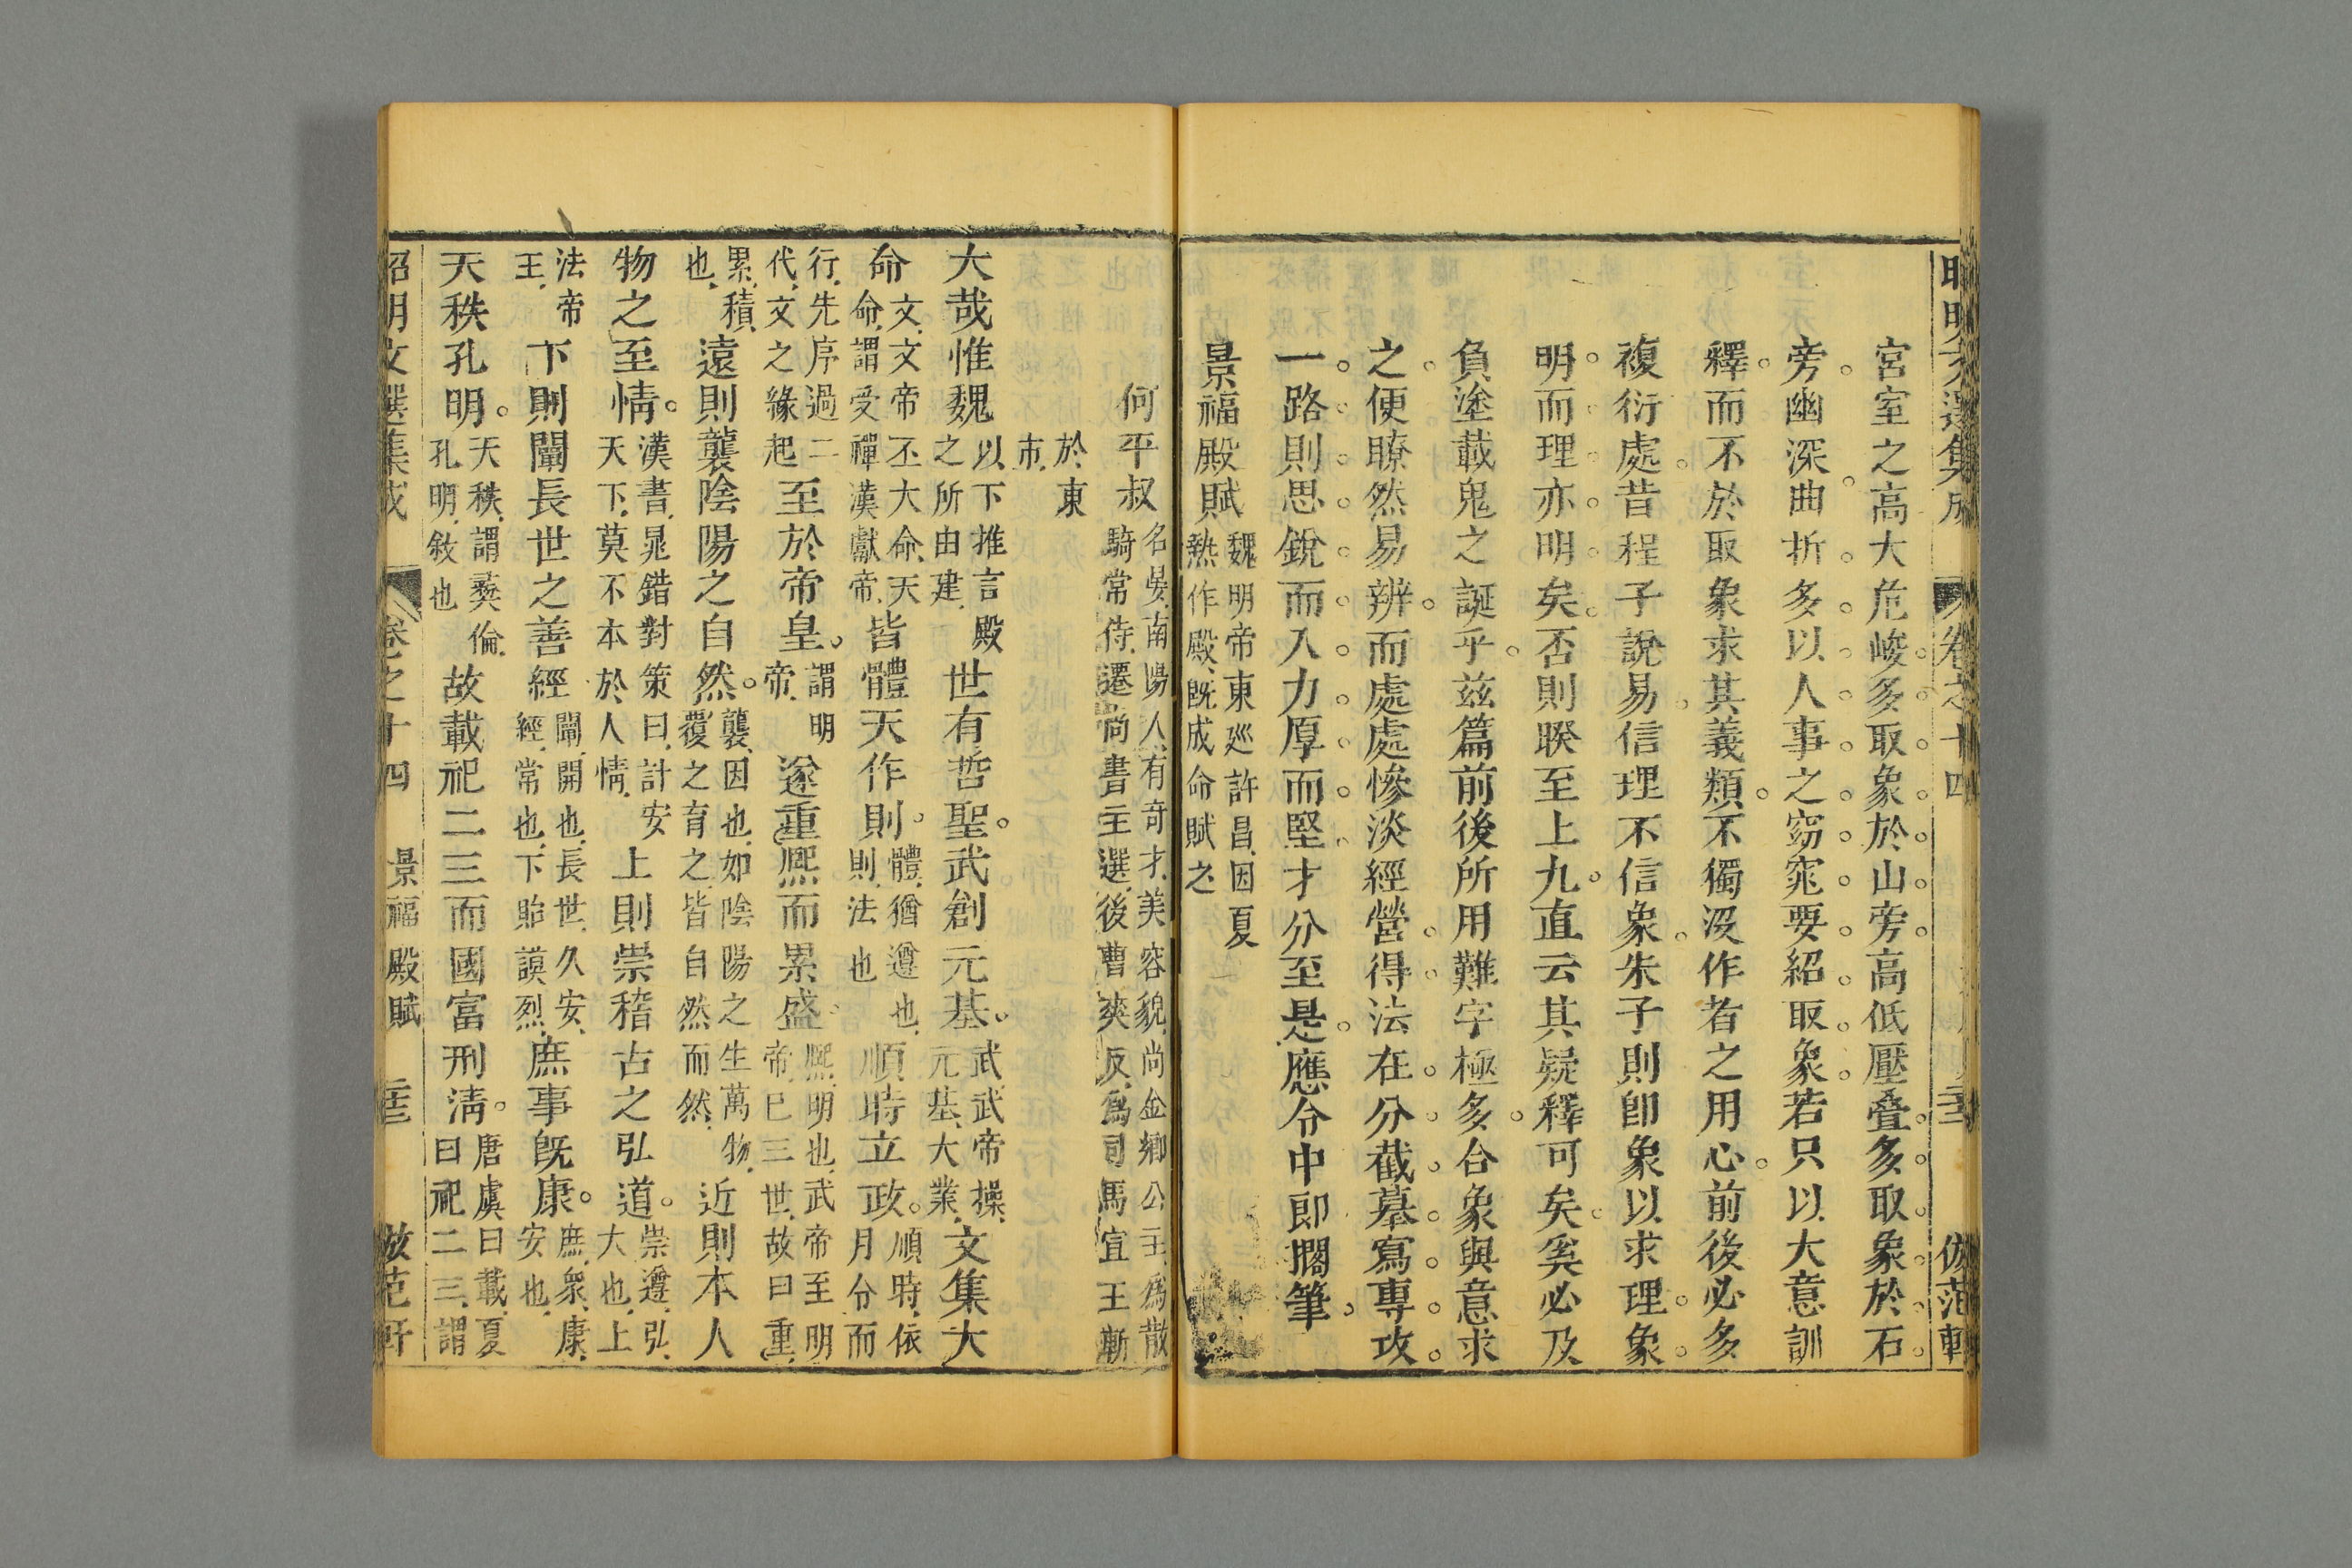 宮室之高大危峻多取象於山旁高低壓叠多取象於石
旁幽深曲折多以人事之窈窕要紹取象若只以大意訓
釋而不於取象求其義類不獨沒作者之用心前後必多
複衍處昔程子說易信理不信象朱子則卽象以求理象
明而理亦明矣否則睽至上九直云其疑釋可矣奚必及
負塗載鬼之誕乎兹篇前後所用難字極多合象與意求
之便瞭然易辨而處處慘淡經營得法在分截摹寫專攻
一路則思銳而入力厚而堅才分至是應令中郎擱筆
景福殿賦魏明帝東廵許昌因夏
熱作殿旣成命賦之
何平叔名晏南陽人有奇才美容貌尚金鄉公主爲散
騎常侍遷尚書主選後曹爽反爲司馬宣王斬
於東
市
大哉惟魏以下推言殿
之所由建世有哲聖武創元基武武帝操
元基大業文集大
命文文帝丕大命天
命謂受禪漢獻帝皆體天作則體猶遵也
則法也順時立政順時依
月令而
行先序過二
代文之緣起至於帝皇謂明
帝遂重熙而累盛熙明也武帝至明
帝巳三世故曰重
累積
也遠則襲陰陽之自然襲因也如陰陽之生萬物
覆之育之皆自然而然近則本人
物之至情漢書晁錯對策曰計安
天下莫不本於人情上則崇稽古之弘道崇遵弘
大也上
法帝
王下則闡長世之善經闡開也長世久安
經常也下貽謨烈庶事旣康庶衆康
安也
天秩孔明天秩謂彝倫
孔明敘也故載祀二三而國富刑清唐虞曰載夏
曰祀二三謂
昭明文選集成 卷之十四 景福殿賦 倣范軒